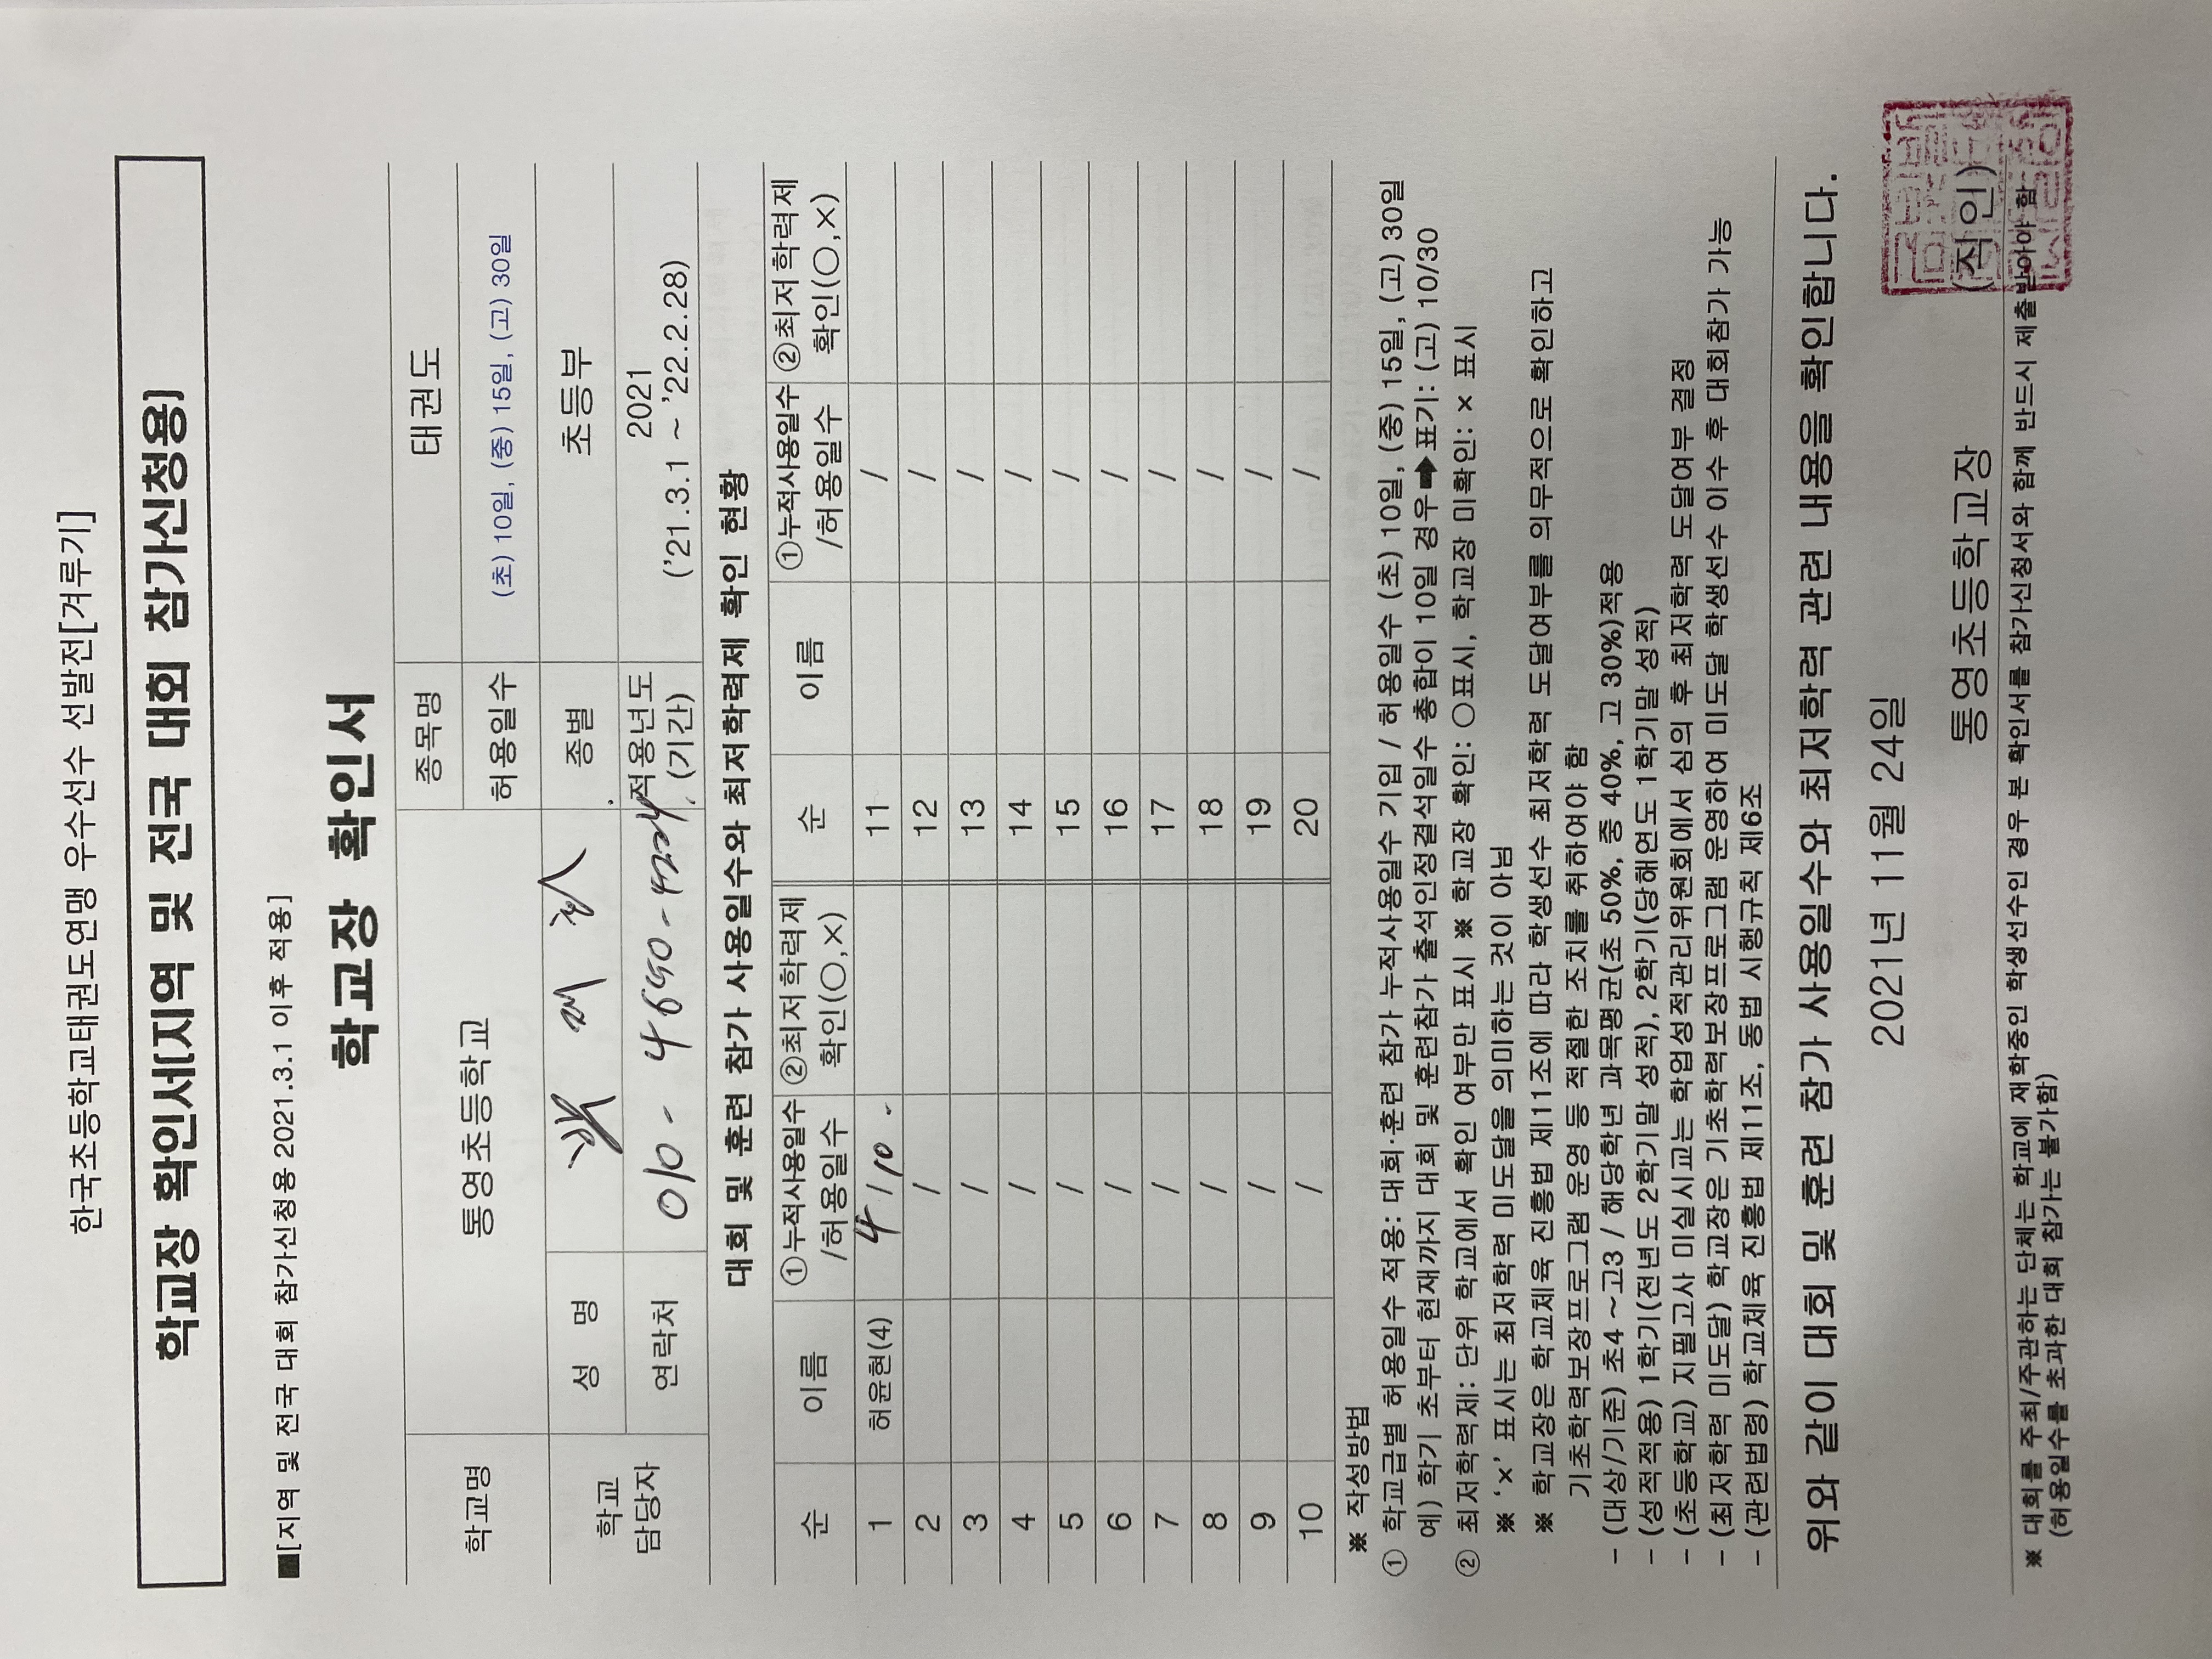 한국초등학교태권도연맹 우수선수 선발전[겨루기]
학교장 확인서[지역 및 전국 대회 참가신청용]
■[지역 및 전국 대회 참가신청용 2021.3.1 이후 적용]
학교장 확인서
학교명 통영초등학교 종목명 태권도
허용일수 (초) 10일, (중) 15일, (고) 30일
학교 담당자 성 명 종별 초등부
연락처 010- 적용년도 (기간) 2021 ('21.3.1 ~ '22.2.28)
대회 및 훈련 참가 사용일수와 최저학력제 확인 현황
순 이름 ①누적사용일수 /허용일수 ②최저학력제 확인(○,×) 순 이름 ①누적사용일수 /허용일수 ②최저학력제 확인(○,×)
1 허윤현(4) 4 / 10 11 /
2 / 12 /
3 / 13 /
4 / 14 /
5 / 15 /
6 / 16 /
7 / 17 /
8 / 18 /
9 / 19 /
10 / 20 /
※ 작성방법
① 학교급별 허용일수 적용: 대회·훈련 참가 누적사용일수 기입 / 허용일수 (초) 10일, (중) 15일, (고) 30일
예) 학기 초부터 현재까지 대회 및 훈련참가 출석인정결석일수 총합이 10일 경우 ➡ 표기: (고) 10/30
② 최저학력제: 단위 학교에서 확인 여부만 표시 ※ 학교장 확인: ○표시, 학교장 미확인: × 표시
※ '×' 표시는 최저학력 미도달을 의미하는 것이 아님
※ 학교장은 학교체육 진흥법 제11조에 따라 학생선수 최저학력 도달여부를 의무적으로 확인하고
기초학력보장프로그램 운영 등 적절한 조치를 취하여야 함
- (대상/기준) 초4 ~고3 / 해당학년 과목평균(초 50%, 중 40%, 고 30%)적용
- (성적적용) 1학기(전년도 2학기말 성적), 2학기(당해연도 1학기말 성적)
- (초등학교) 지필고사 미실시교는 학업성적관리위원회에서 심의 후 최저학력 도달여부 결정
- (최저학력 미도달) 학교장은 기초학력보장프로그램 운영하여 미도달 학생선수 이수 후 대회참가 가능
- (관련법령) 학교체육 진흥법 제11조, 동법 시행규칙 제6조
위와 같이 대회 및 훈련 참가 사용일수와 최저학력 관련 내용을 확인합니다.
2021년 11월 24일
통영초등학교장 (직인)
※ 대회를 주최/주관하는 단체는 학교에 재학중인 학생선수인 경우 본 확인서를 참가신청서와 함께 반드시 제출받아야 함
(허용일수를 초과한 대회 참가는 불가함)